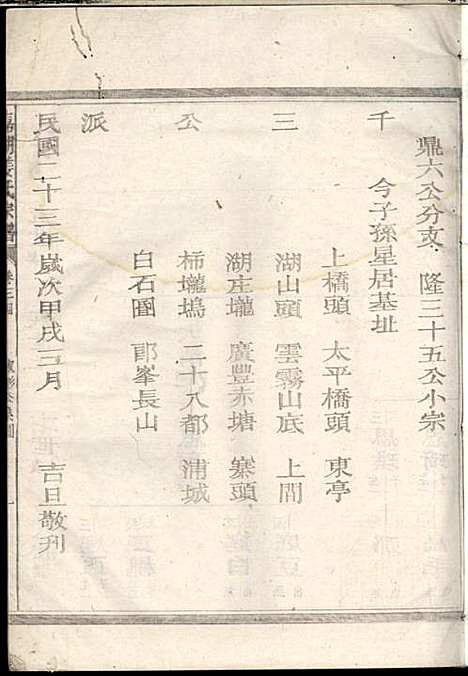 鼎六公分支 隆三十五公小宗
今子孫星居基址
千三公派
上橋頭 太平橋頭 東亭
湖山頭 雲霧山底 上間
湖庄壠 廣豐赤塘 寨頭
柿壠塢 二十八都 浦城
白石圊 郎峯長山
民國二十三年歲次甲戌三月 吉旦敬刊
姜氏宗譜